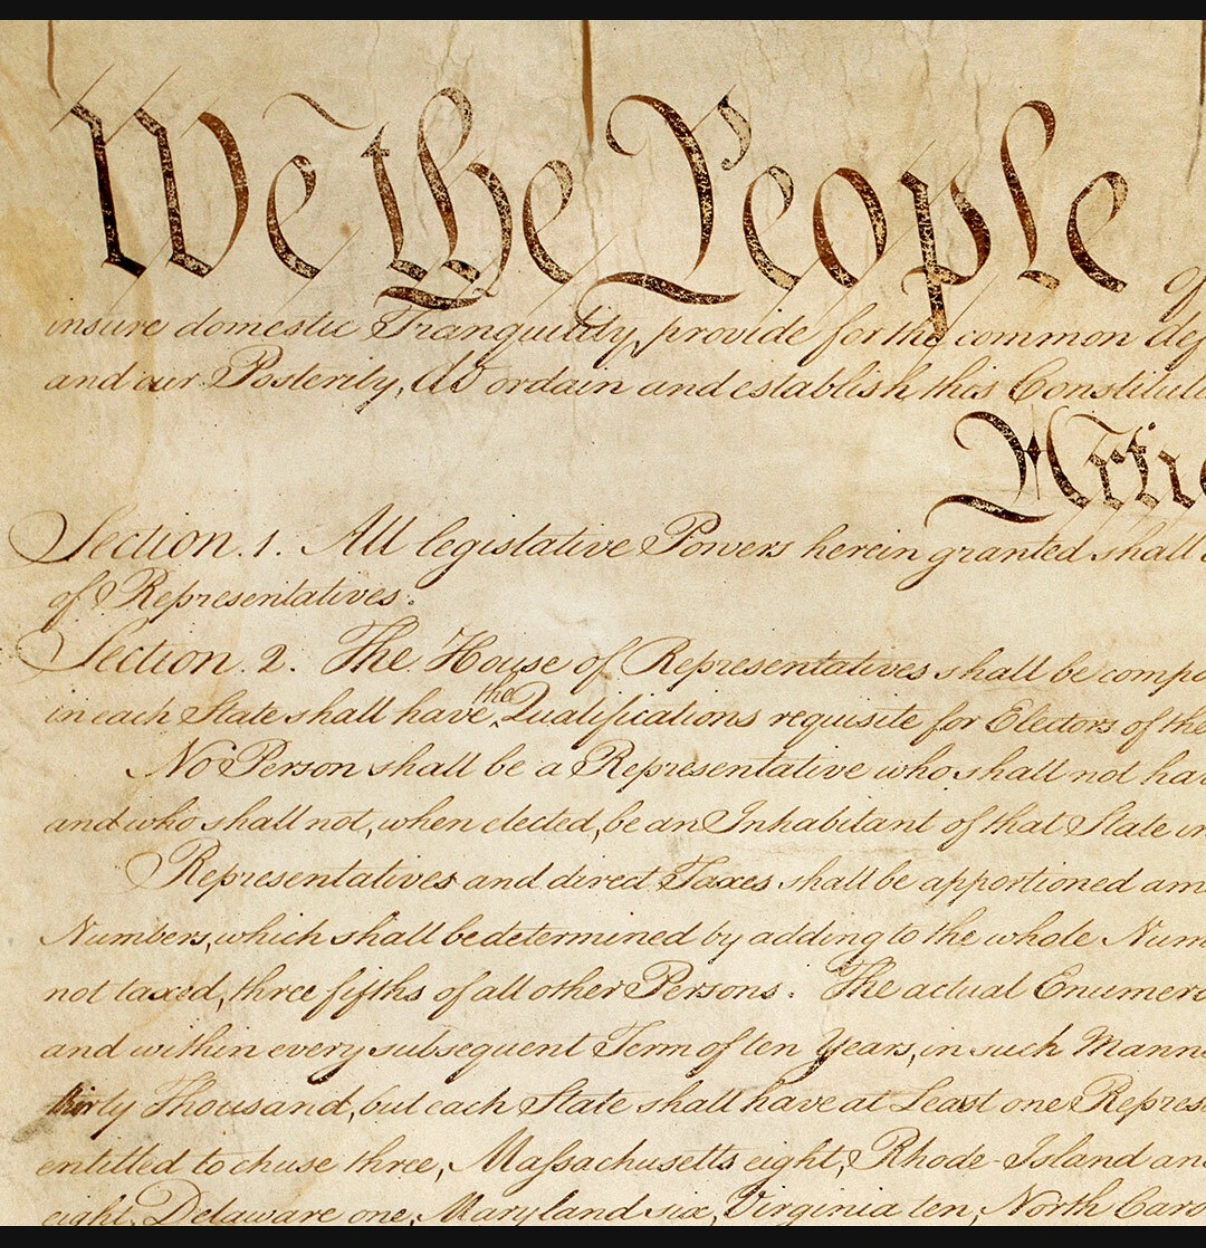 We the People of
insure domestic Tranquility, provide for the common def
and our Posterity, do ordain and establish this Constituti
Artic
Section. 1. All legislative Powers herein granted shall
of Representatives.
Section. 2. The House of Representatives shall be compo
in each State shall have the Qualifications requisite for Electors of the
No Person shall be a Representative who shall not hav
and who shall not, when elected, be an Inhabitant of that State in
Representatives and direct Taxes shall be apportioned am
Numbers, which shall be determined by adding to the whole Num
not taxed, three fifths of all other Persons. The actual Enumera
and within every subsequent Term of ten Years, in such Mann
thirty Thousand, but each State shall have at Least one Repres
entitled to chuse three, Massachusetts eight, Rhode-Island an
eight, Delaware one, Maryland six, Virginia ten, North Caro